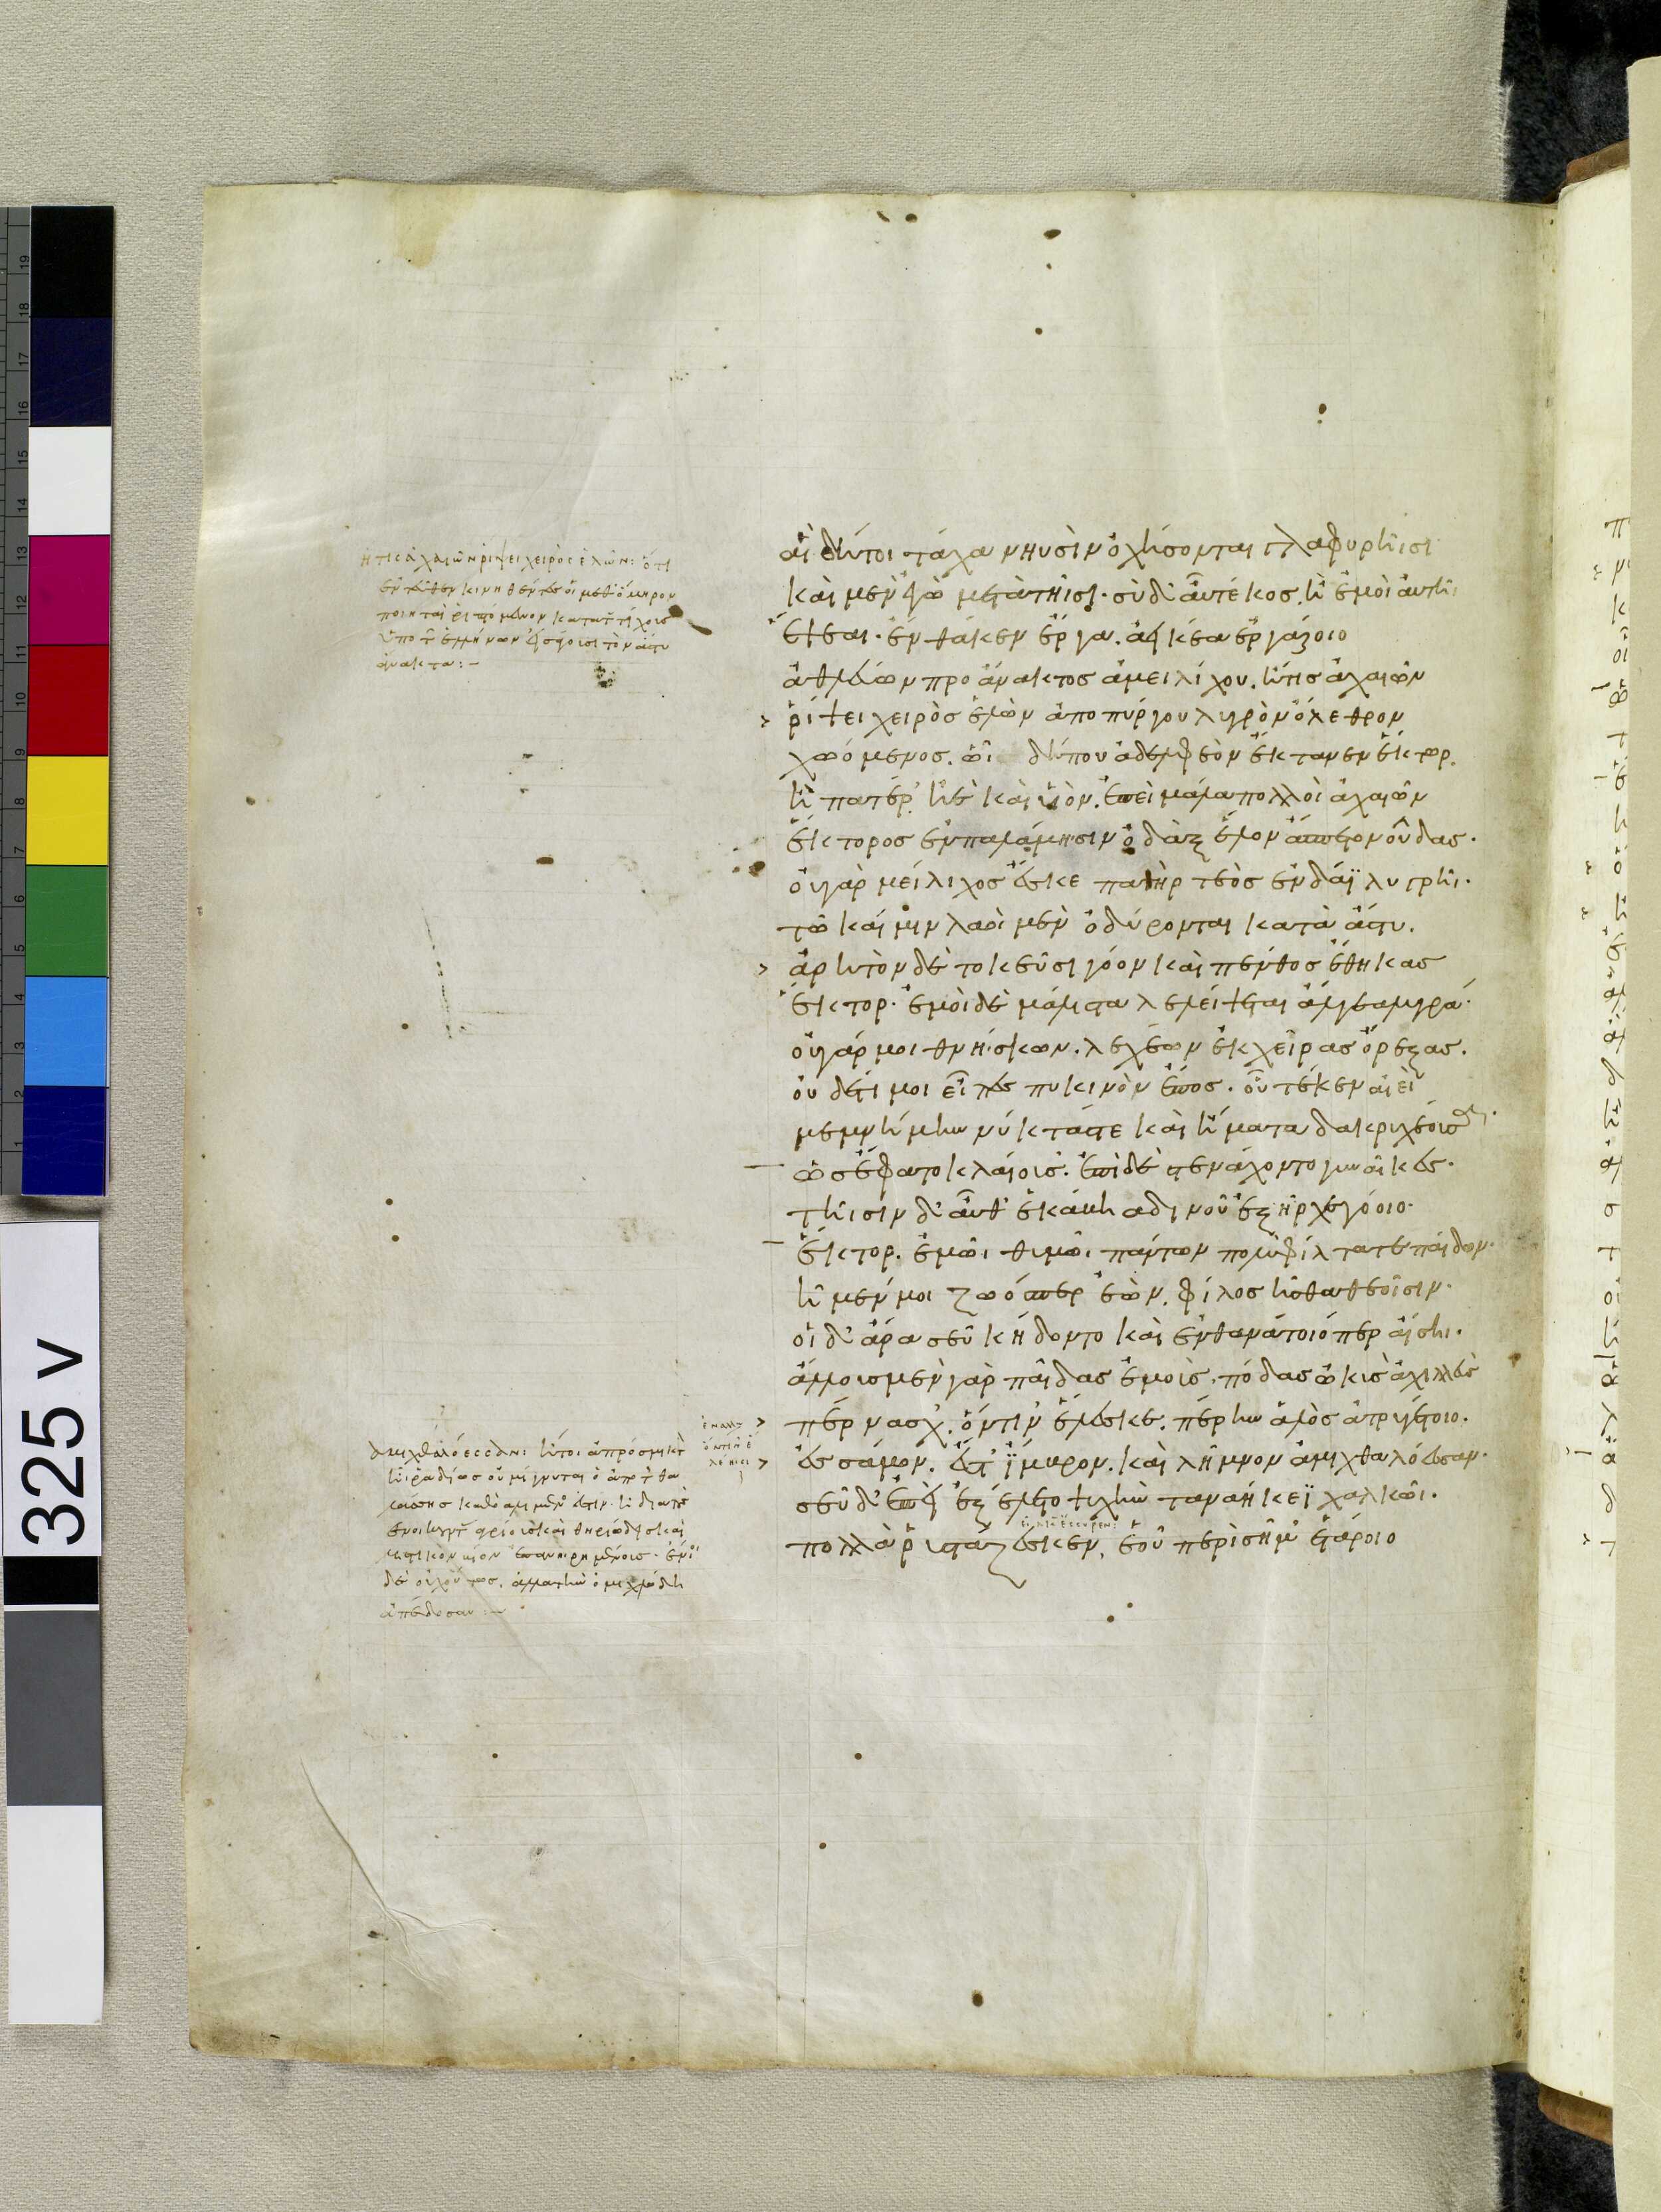 ἤ τις ἀχαιῶν ῥίψει χειρὸς ἑλών: ὅτι
ἐντεῦθεν κινηθέντες οἱ μεθ' ὅμηρον
ποιηταὶ ῥιπτόμενον κατὰ τ τείχους
ὑπὸ τ ἑλλήνων εἰσάγουσι τὸν ἀστυ
άνακτα:~
αἱ δήτοι τάχα νηυσὶν ὀχήσονται γλαφυρῆισι
καὶ μὲν ἐγὼ μετὰ τῆισι· σὺ δ' αὖ τέκος. ἢ ἐμοὶ αὐτῆι
ἕψεαι. ἔνθά κεν ἔργα. ἀεικέα ἐργάζοιο
ἀθλεύων προ άνακτος ἀμειλίχου. ἤ τις ἀχαιῶν
ῥίψει χειρὸς ἑλὼν ἀπο πύργου λυγρὸν ὄλεθρον
χωόμενος. ὧι δή που ἀδελφεὸν ἔκτανεν ἕκτωρ.
ἢ πατέρ' ἠὲ καὶ υἱόν. ἐπεὶ μάλα πολλοὶ ἀχαιῶν
ἕκτορος ἐν παλάμησιν ὀδὰξ ἕλον ἄσπετον οὖδας.
οὐ γὰρ μείλιχος ἔσκε πατὴρ τεὸς ἐν δάϊ λυγρῆι.
τῶ καί μιν λαοὶ μὲν ὀδύρονται κατὰ ἄστυ.
ἀρητὸν δὲ τοκεῦσι γόον καὶ πένθος ἔθηκας
ἕκτορ. ἐμοὶ δὲ μάλιστα λελείψεται ἄλγεα λυγρά·
οὐ γάρ μοι θνήσκων. λεχέων ἐκ χεῖρας ὄρεξας.
οὐ δέ τί μοι εἶπες πυκινὸν ἔπος. οὗ τέ κεν αἰεὶ
μεμνήμην νύκτάς τε καὶ ἤματα δακρυχέουσα.
ὣς ἔφατο κλαίουσ'. ἐπὶ δὲ στενάχοντο γυναῖκες.
τῆισιν δ' αὖθ' ἑκάβη ἁδινοῦ ἐξῆρχε γόοιο.
ἕκτορ. ἐμῶι θυμῶι πάντων πολὺ φίλτατε παίδων.
ἦ μέν μοι ζωόσπερ ἐὼν. φίλος ἦσθα θεοῖσιν.
οἱ δ' ἄρα σεῦ κήδοντο καὶ ἐν θανάτοιό περ αἴσηι.
ἄλλους μὲν γὰρ παῖδας ἐμοὺς. πόδας ὠκὺς ἀχιλλεὺς
πέρνασχ'. ὅν τιν' ἕλεσκε. πέρην ἁλὸς ἀτρυγέτοιο.
ἐς σάμον. ἔς τ' ἴμβρον. καὶ λῆμνον ἀμιχθαλόεσσαν.
σεῦ δ' ἐπεὶ ἐξέλετο ψυχὴν ταναήκεϊ χαλκῶι.
πολλὰ ῥυστάζεσκεν. ἑοῦ περὶ σῆμ' ἑτάροιο
ἐν ἄλλ
ὅντιν' ἕ
λῃσι
ἀμιχθαλόεσσαν: ἤτοι ἀπρόσμικτ
ἧι ῥαδίως οὐ μίγνυται ὁ ἀπὸ τ θα
λάσσης καθὸ ἀλίμενός ἐστιν. ἢ διὰ τὸ τ
ἐνοικοῦντ ἀγρίους καὶ θηριώδεις καὶ
βίον ἐπανηρημένους. ἔνιοι
δὲ οὐχ οὕτως. ἀλλὰ τὴν ὁμιχλώδη
ἀπέδοσαν:~
325 v